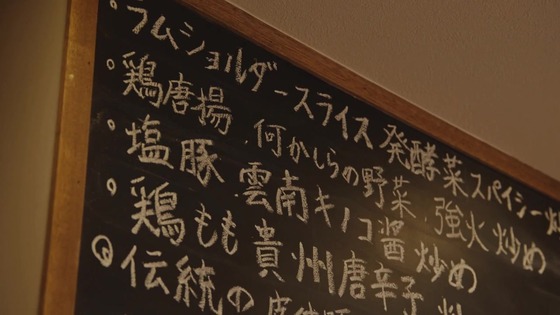 ラムショルダースライス 発酵菜スパイシー
鶏唐揚
何かしらの野菜 強火炒め
塩豚 雲南キノコ醤炒め
鶏もも 貴州唐辛子
伝統の